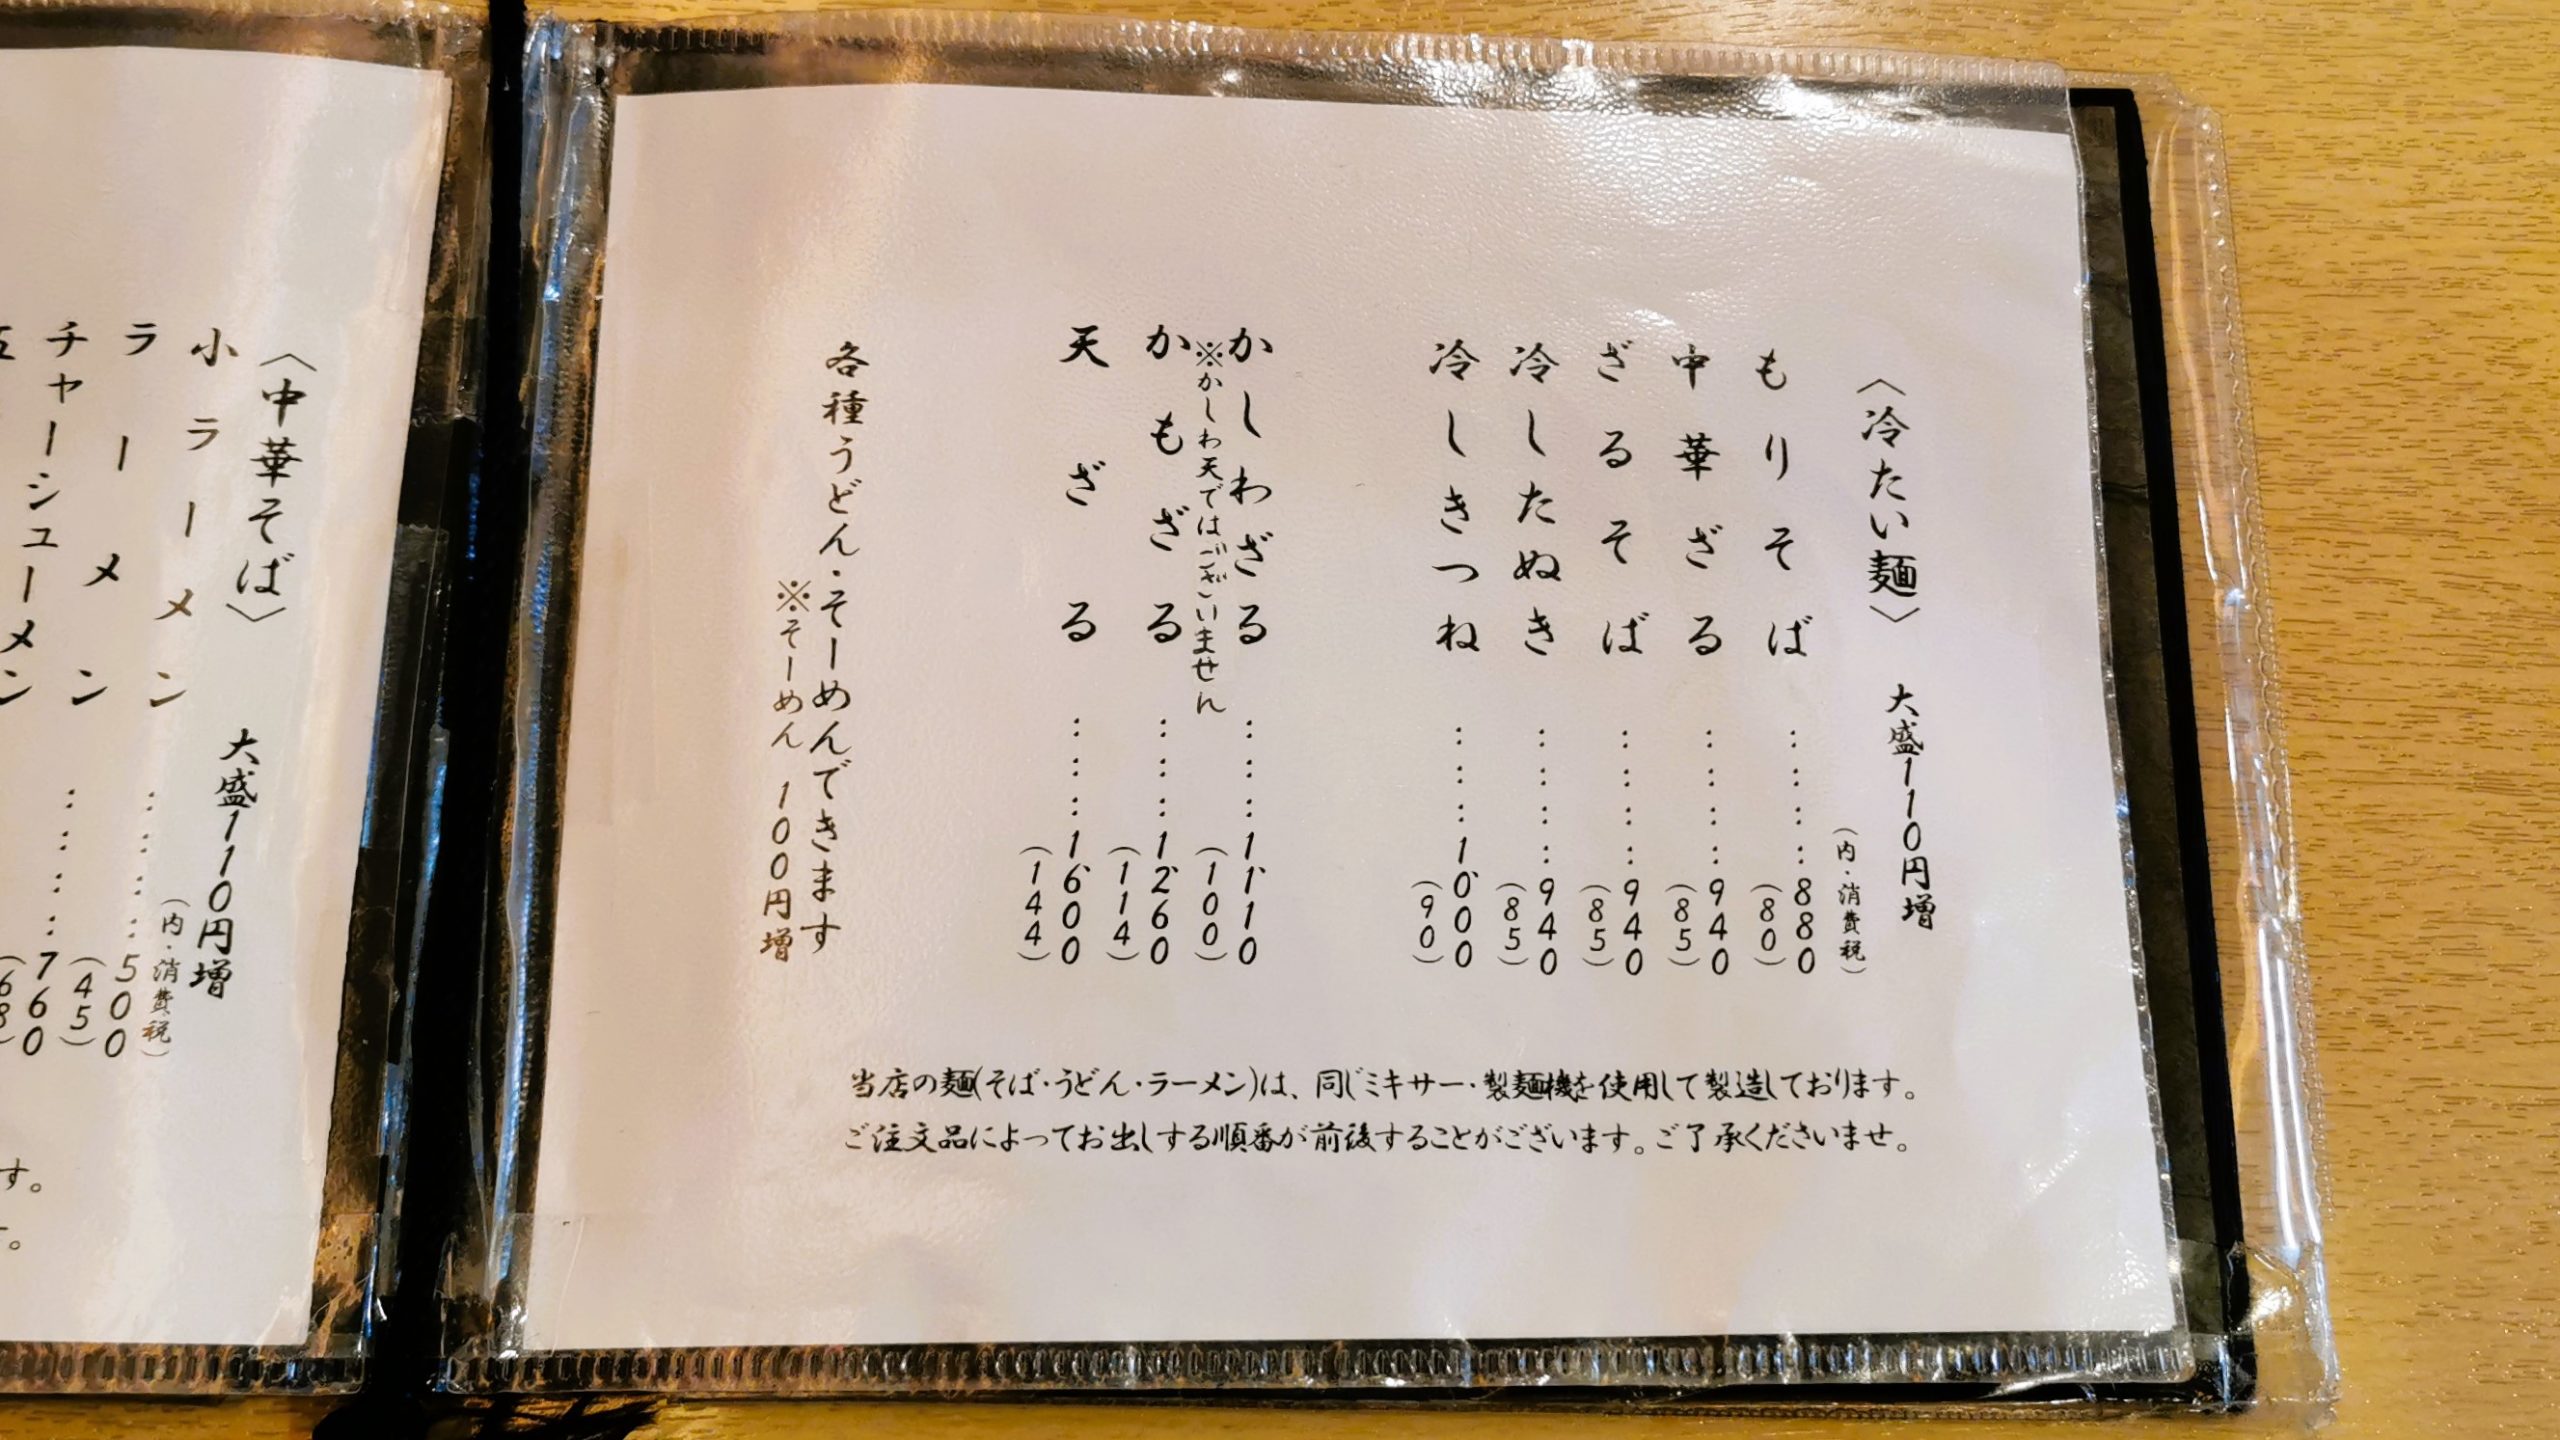 〈冷たい麺〉 大盛110円増
(内・消費税)
もりそば ………880
(80)
中華ざる ………940
(85)
ざるそば ………940
(85)
冷したぬき ………940
(85)
冷しきつね ………1,000
(90)
かしわざる ………1,110
(100)
※かしわ天ではございません
かもざる ………1,260
(114)
天ざる ………1,600
(144)
各種うどん・そーめんできます
※そーめん 100円増
当店の麺(そば・うどん・ラーメン)は、同じミキサー・製麺機を使用して製造しております。
ご注文品によってお出しする順番が前後することがございます。ご了承くださいませ。
〈中華そば〉 大盛110円増
(内・消費税)
小ラーメン ………500
(45)
ラーメン ………760
(68)
チャーシューメン
す。